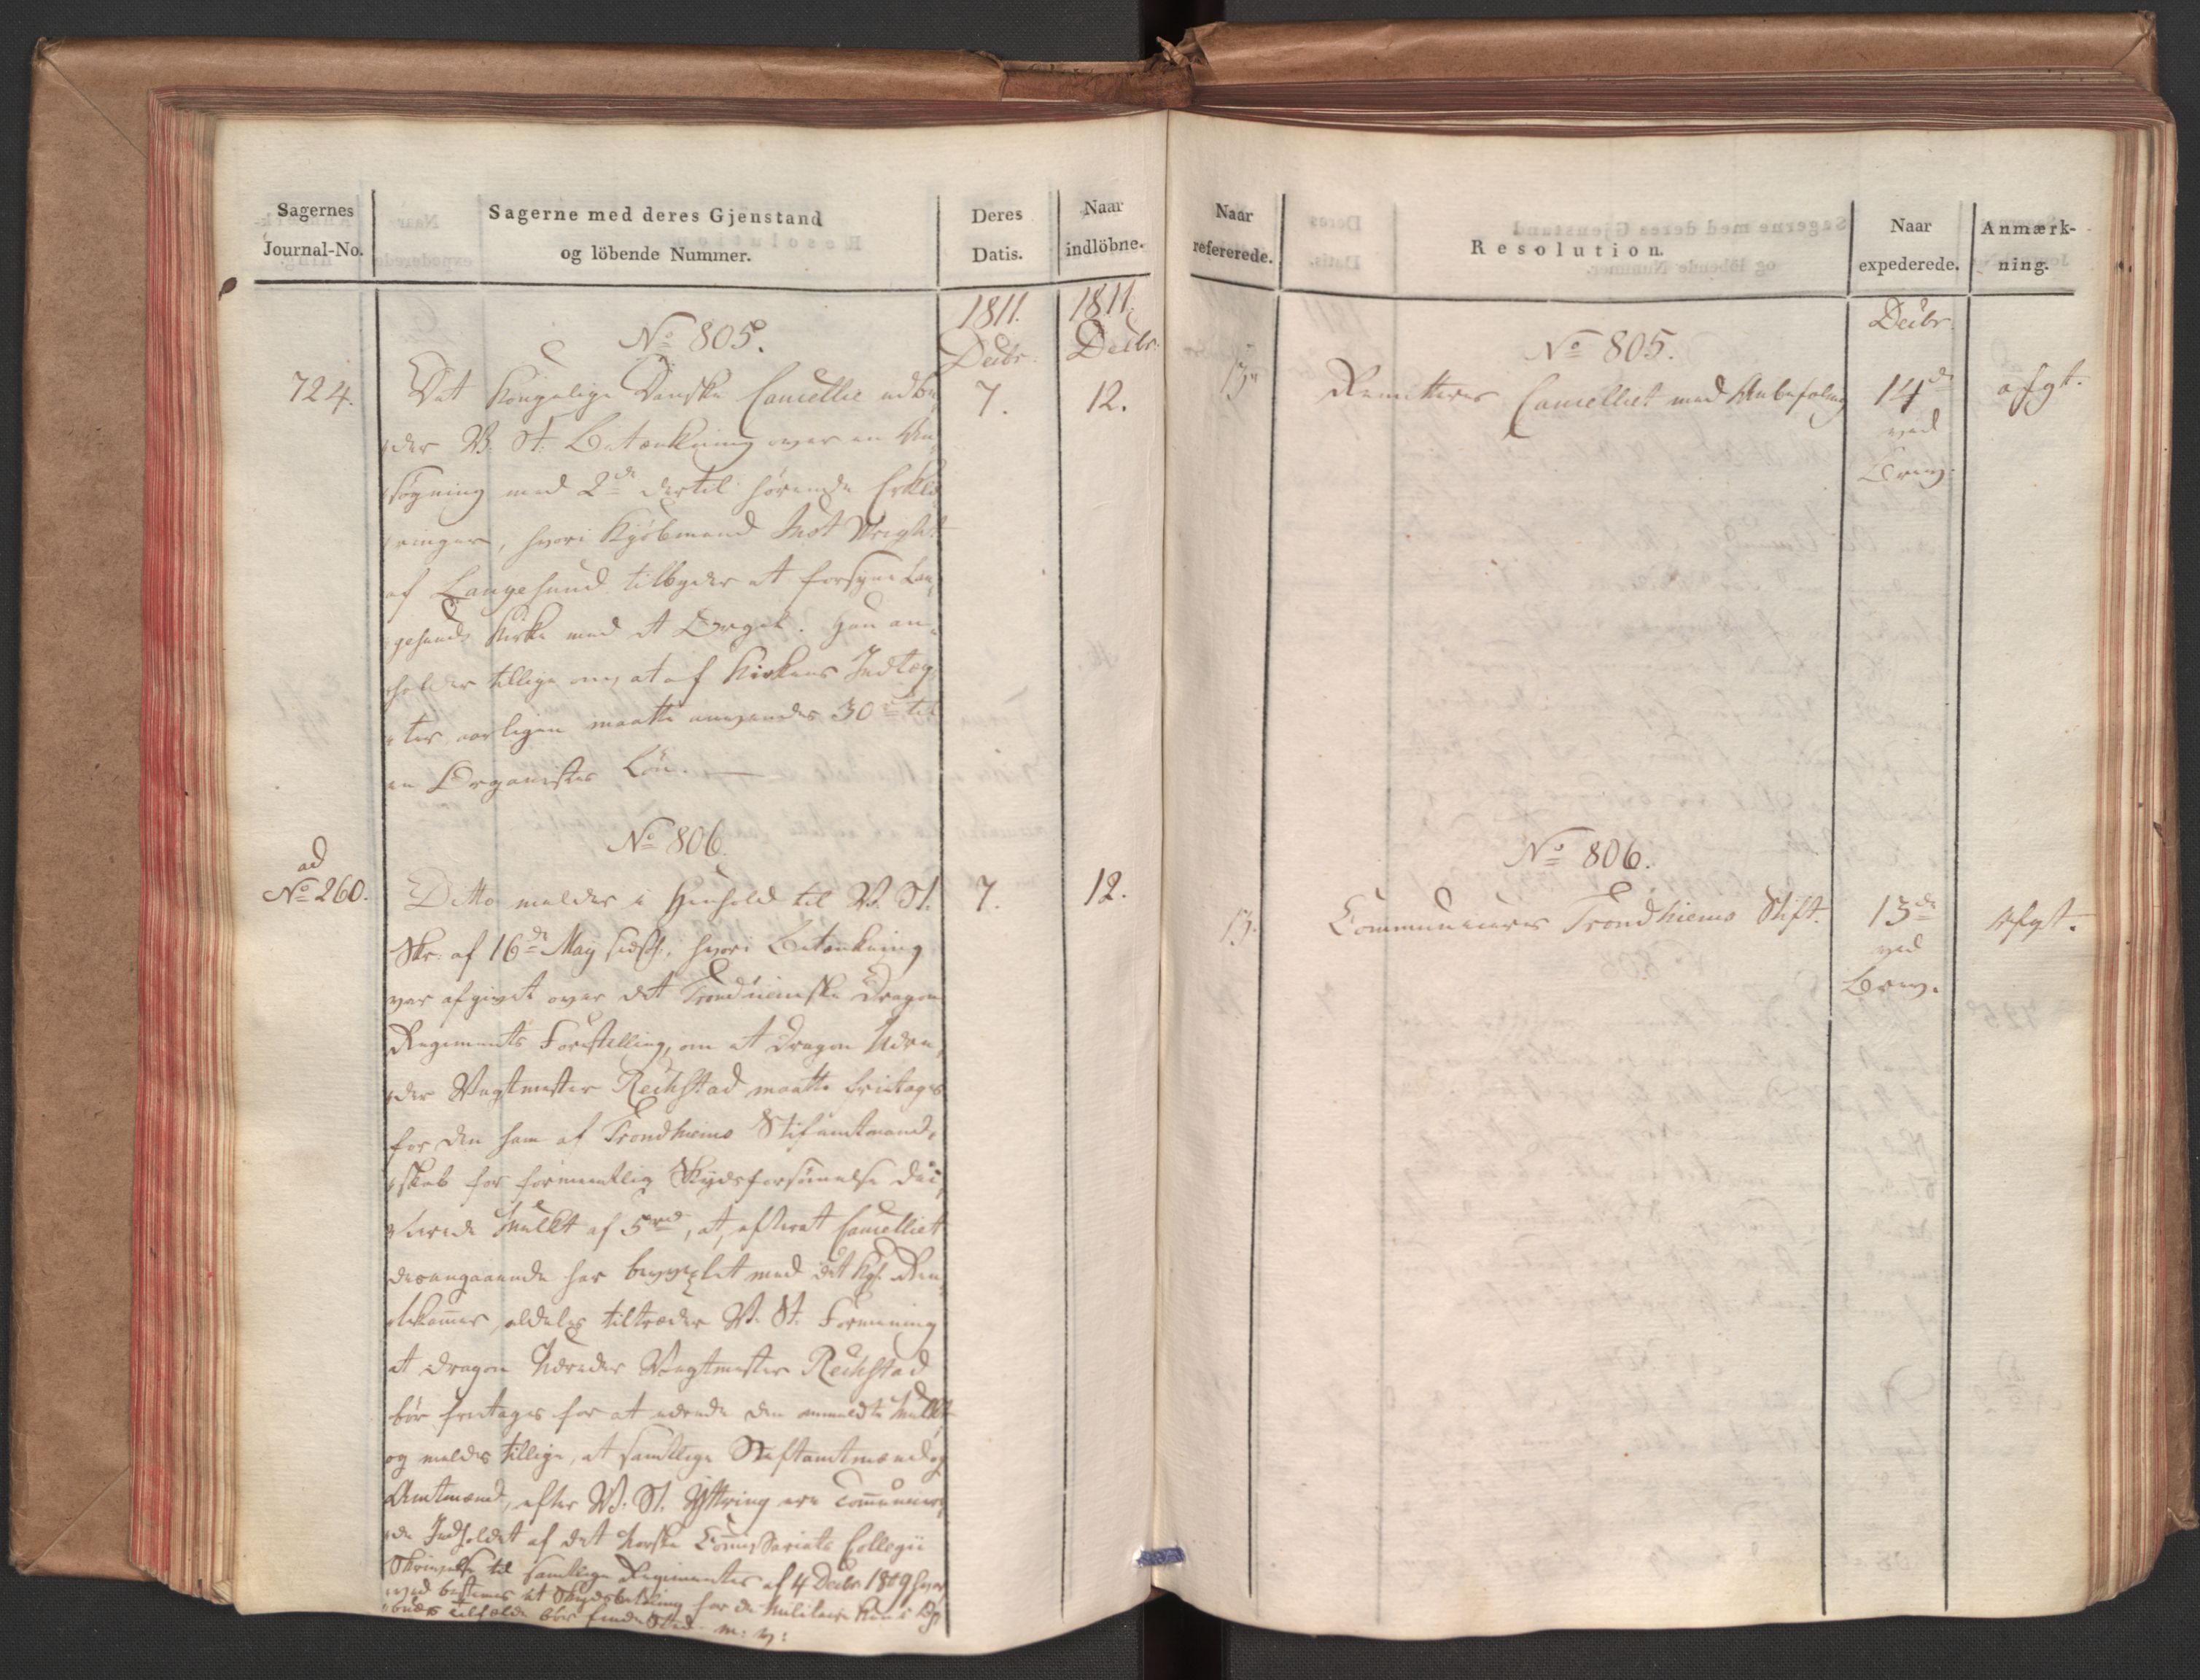 Sagernes
Journal-No.
Sagerne med deres Gjenstand
og löbende Nummer.
Deres
Datis.
Naar
indlöbne.
1811.
Decbr.
1811.
Decbr.
No 805.
724.
7.
12.
Det Kongelige Danske Cancellie udbe-
der V. St. Betænkning over en An-
søgning med 2de dertil hørende Erklæ-
ringer, hvori Kjøbmand Wright
af Langesund tilbyder at forsyne Lan-
gesunds Kirke med et Orgel. Han an-
holder tillige om, at af Kirkens Indtæg-
ter aarligen maatte anvendes 30 rd til
en Organistes Løn. —
No 806.
ad
No 260.
7.
12.
Ditto melder i Henhold til V. St.
Skr. af 16de May sidstl., hvori Betænkning
var afgivet over det Trondhiemske Dragon
Regiments Forestilling, om at Dragon Under-
Vagtmester Reihstad maatte fritages
for den ham af Trondhiems Stiftamtmand-
skab for formeentlig Skydsforsømmelse dic-
terede Mulkt af 5 rd, at, efterat Cancelliet
desangaaende har bevexlet med det Kgl. Ren-
tekammer, aldeles tiltræder V. St. Formening
at Dragon Vagtmester Reihstad
bør fritages for at udrede den anmeldte Mulkt
og meldes tillige, at samtlige Stiftamtmænd og
Amtmænd, efter V. St. Yttring ere communicere-
de Indholdet af det norske Commissariats Collegii
Skrivelse til samtlige Regimenter af 4 Decbr 1809 hvor-
ved bestemmes at Skydsbetaling for de Militaire
tilfælde bør finde Sted m: v:
Naar
refererede.
Resolution.
Naar
expederede.
Anmærk-
ning.
Decbr.
No 805.
13.
Remitteres Cancelliet med Anbefaling
14de
ved
Brev.
afgt.
No 806.
13.
Communiceres Trondhiems Stift.
13de
ved
Brev.
Afgt.